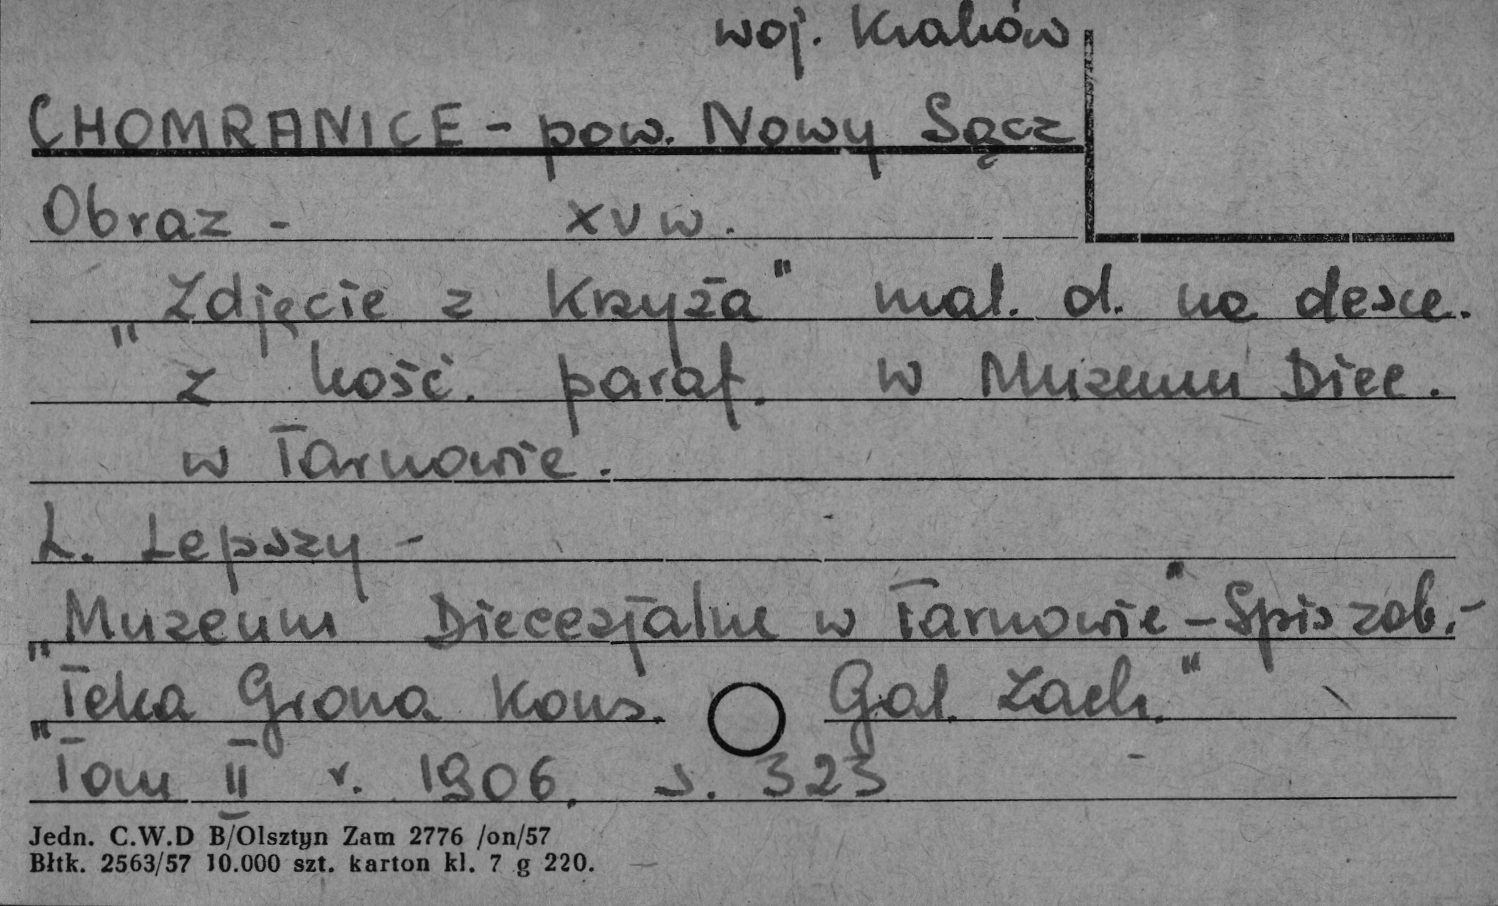 woj. Kraków
CHOMRANICE - pow. Nowy Sącz
Obraz - XV w.
„Zdjęcie z Krzyża" mal. d. na desce.
z kość. paraf. w Muzeum Diec.
w Tarnowie.
L. Lepszy -
„Muzeum Diecezjalne w Tarnowie" - Spis zab. -
„Teka Grona Kons. Gal. Zach."
Tom II r. 1906. s. 323
Jedn. C.W.D B/Olsztyn Zam 2776 /on/57
Błtk. 2563/57 10.000 szt. karton kl. 7 g 220.